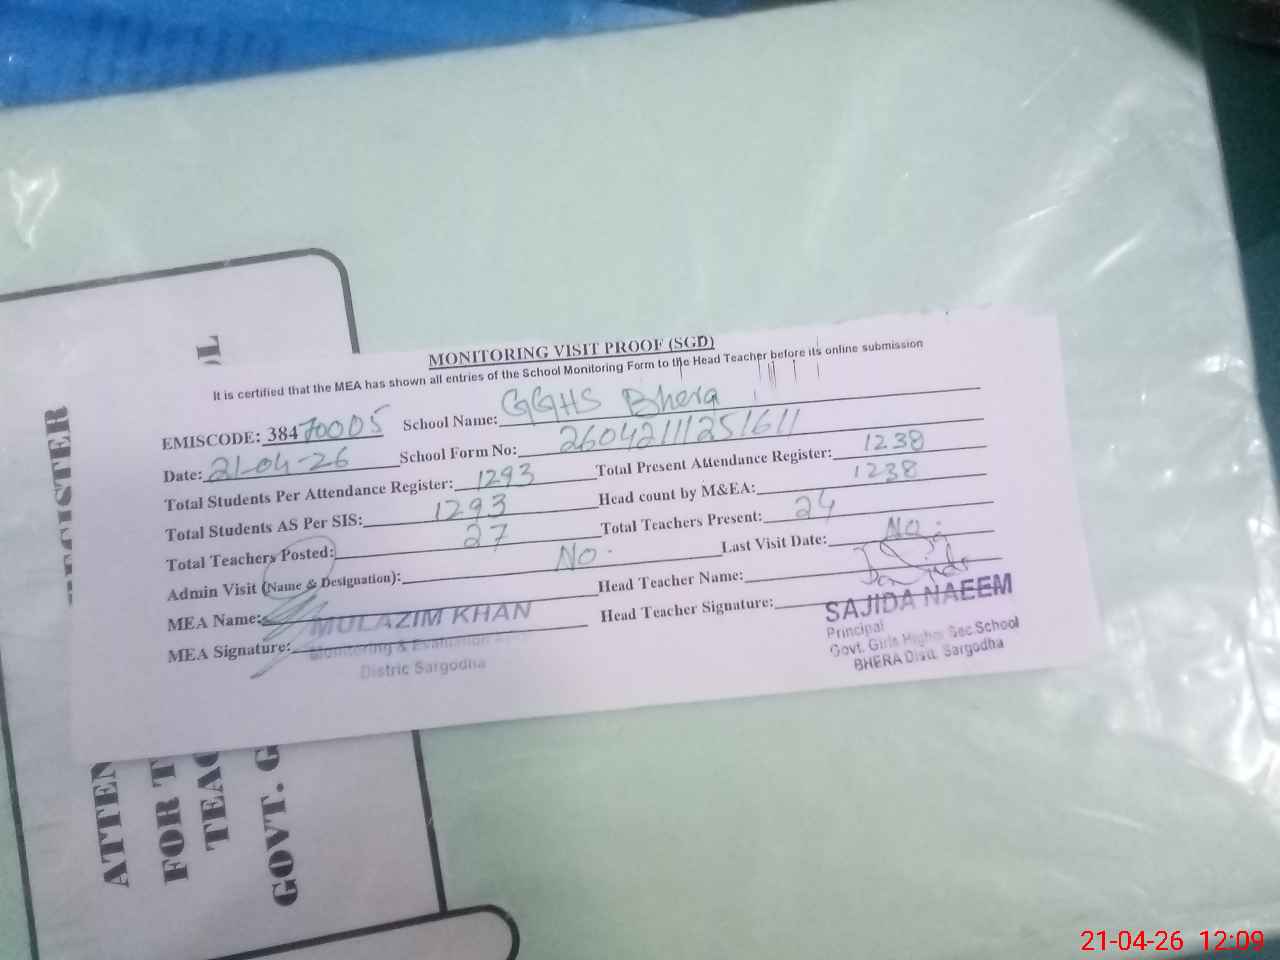 MONITORING VISIT PROOF (SGD)
It is certified that the MEA has shown all entries of the School Monitoring Form to the Head Teacher before its online submission
EMISCODE: 38470005 School Name: GGHS Bhera
Date: 21-04-26 School Form No: 26042111251611
Total Students Per Attendance Register: 1293 Total Present Attendance Register: 1238
Total Students AS Per SIS: 1293 Head count by M&EA: 1238
Total Teachers Posted: 27 Total Teachers Present: 24
Admin Visit (Name & Designation): No. Last Visit Date: No.
MEA Name: Head Teacher Name:
MEA Signature: Head Teacher Signature:
MULAZIM KHAN
Monitoring & Evaluation
Distric Sargodha
SAJIDA NAEEM
Principal
Govt. Girls Higher Sec School
BHERA Distt. Sargodha
ATTEN
FOR T
TEAC
GOVT. G
21-04-26 12:09